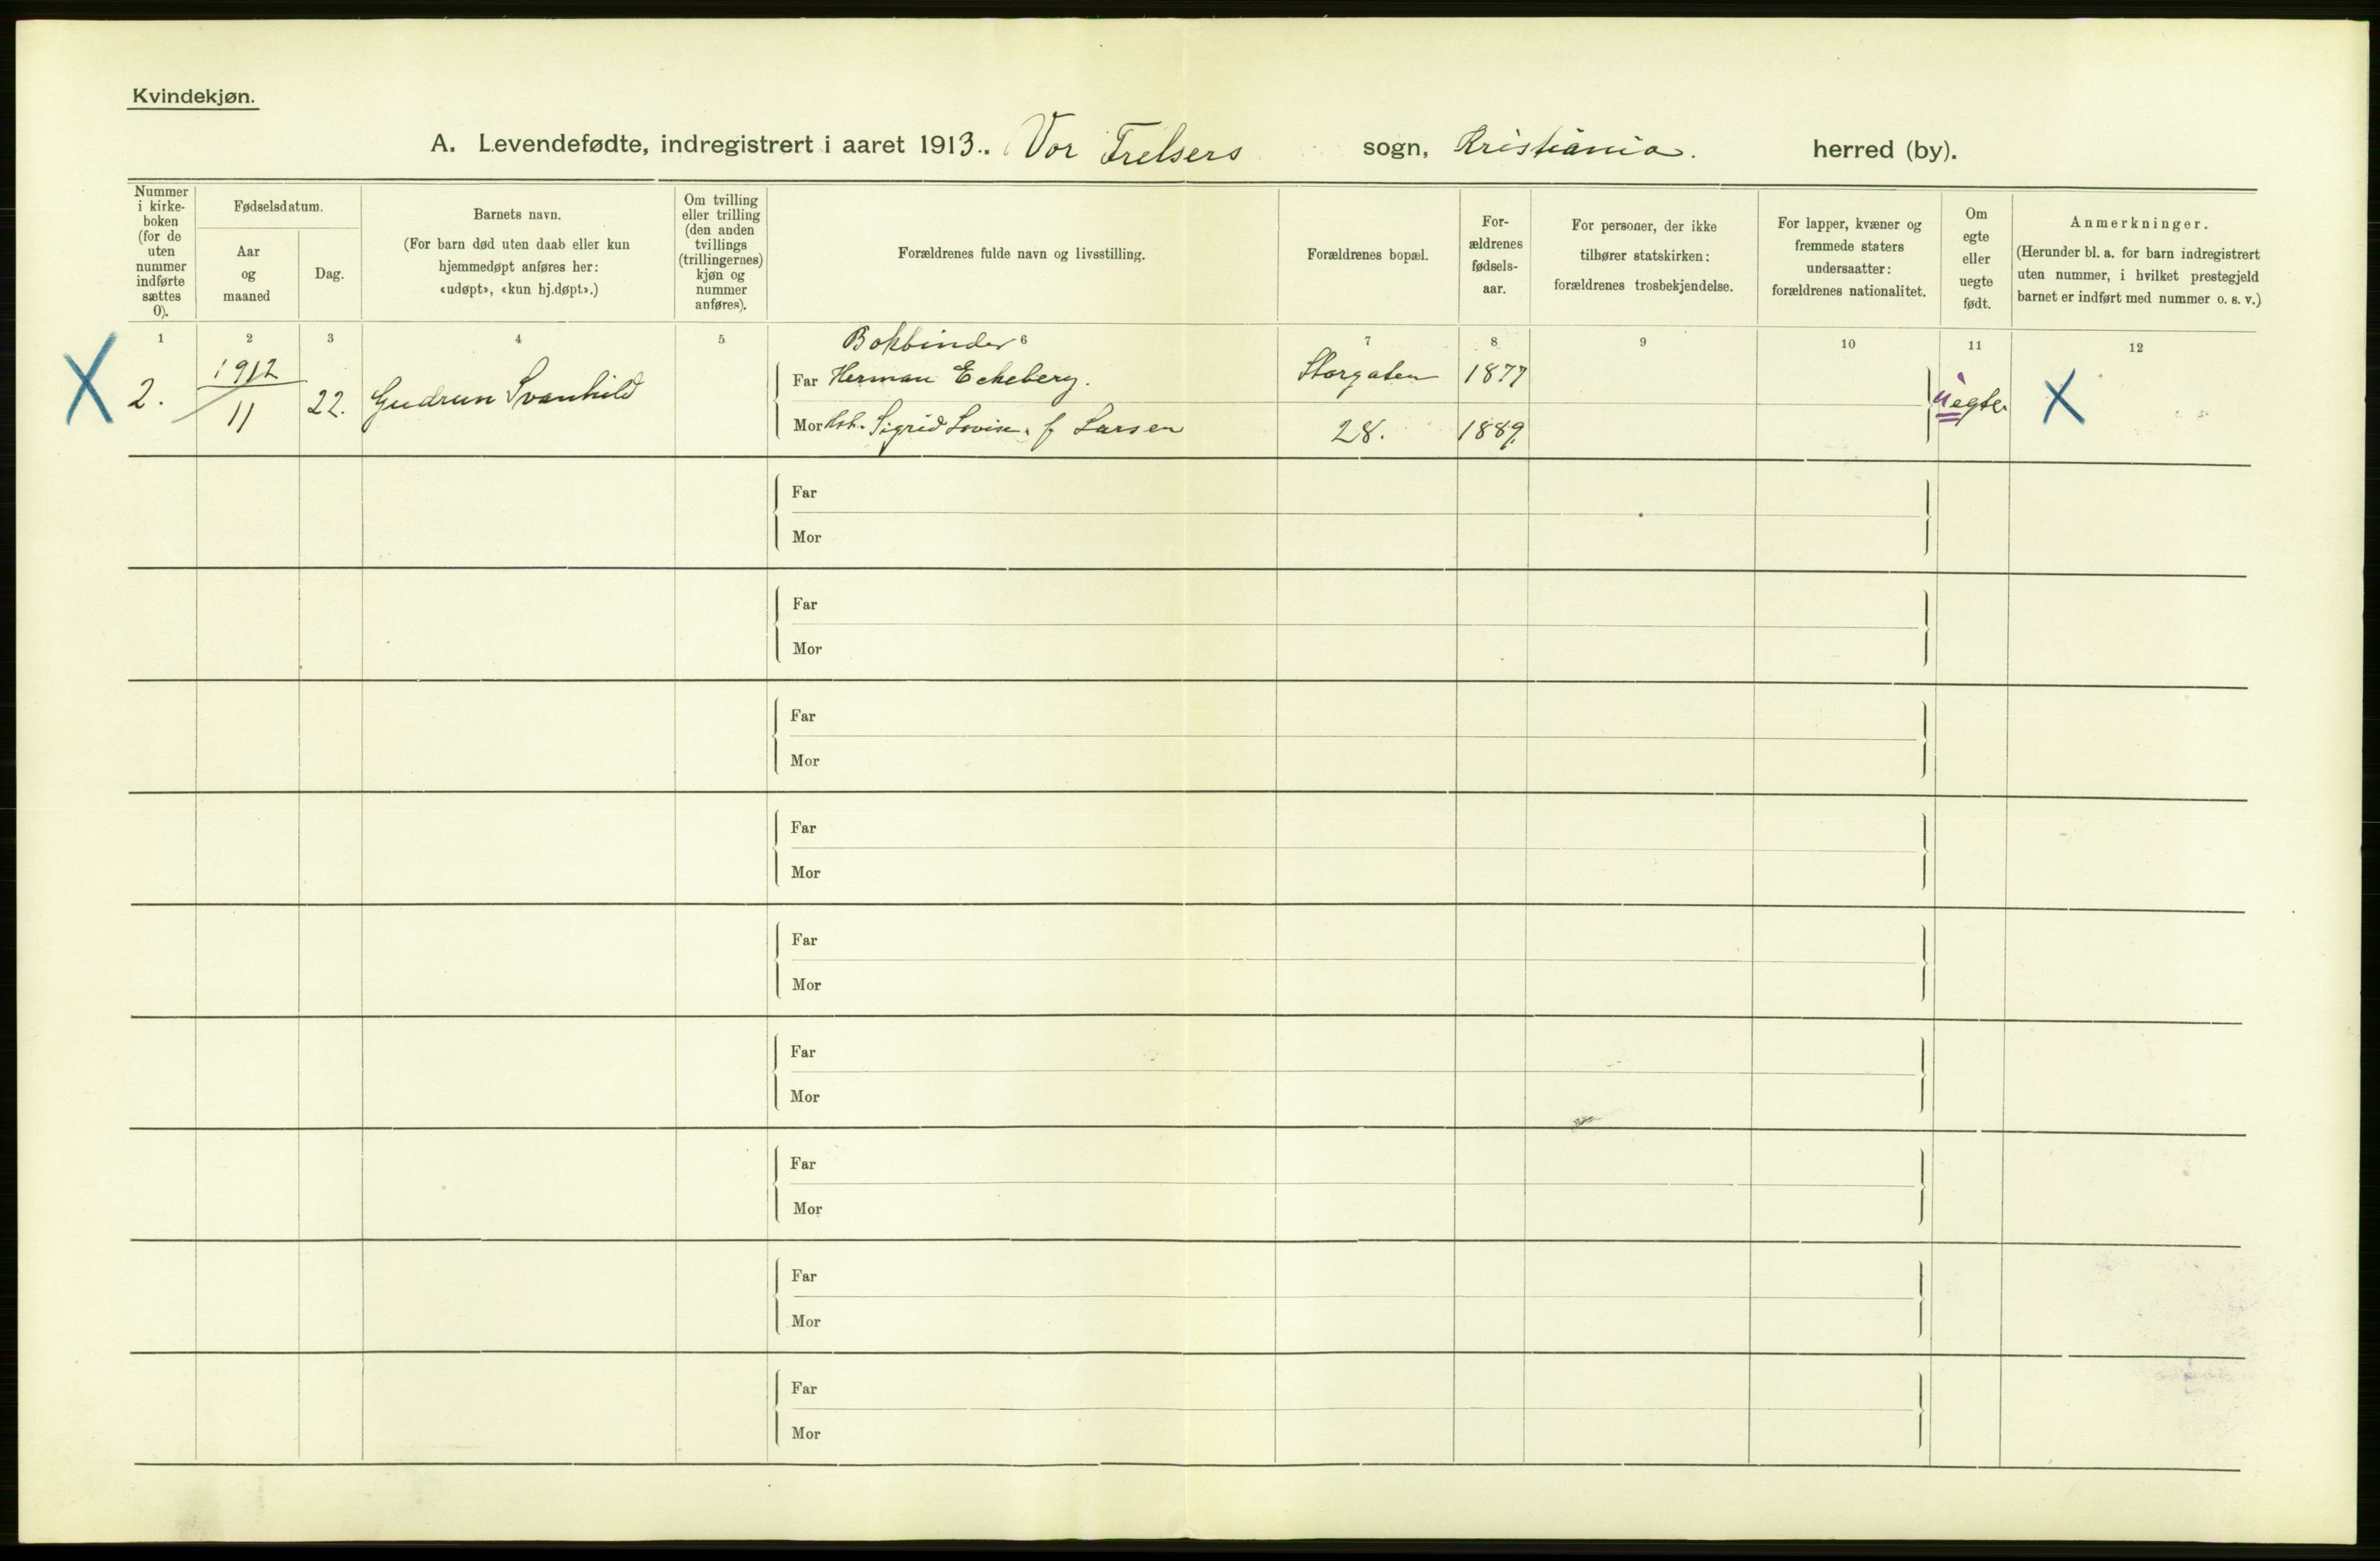 Kvindekjøn.
A. Levendefødte, indregistrert i aaret 1913. Vor Frelsers sogn, Kristiania. herred (by).
Nummer
i kirke-
boken
(for de
uten
nummer
indførte
sættes
0).
Fødselsdatum.
Aar
og
maaned
Dag.
Barnets navn.
(For barn død uten daab eller kun
hjemmedøpt anføres her:
«udøpt», «kun hj.døpt».)
Om tvilling
eller trilling
(den anden
tvillings
(trillingernes)
kjøn og
nummer
anføres).
Forældrenes fulde navn og livsstilling.
Forældrenes bopæl.
For-
ældrenes
fødsels-
aar.
For personer, der ikke
tilhører statskirken:
forældrenes trosbekjendelse.
For lapper, kvæner og
fremmede staters
undersaatter:
forældrenes nationalitet.
Om
egte
eller
uegte
født.
Anmerkninger.
(Herunder bl. a. for barn indregistrert
uten nummer, i hvilket prestegjeld
barnet er indført med nummer o. s. v.)
1 2 3 4 5 6 7 8 9 10 11 12
X 2. 1912
11 22. Gudrun Svanhild
Bokbinder
Far Herman Eckeberg. Storgaten 1877
Mor Sigrid Lovise f Larsen 28. 1889.
uegte X
Far
Mor
Far
Mor
Far
Mor
Far
Mor
Far
Mor
Far
Mor
Far
Mor
Far
Mor
Far
Mor